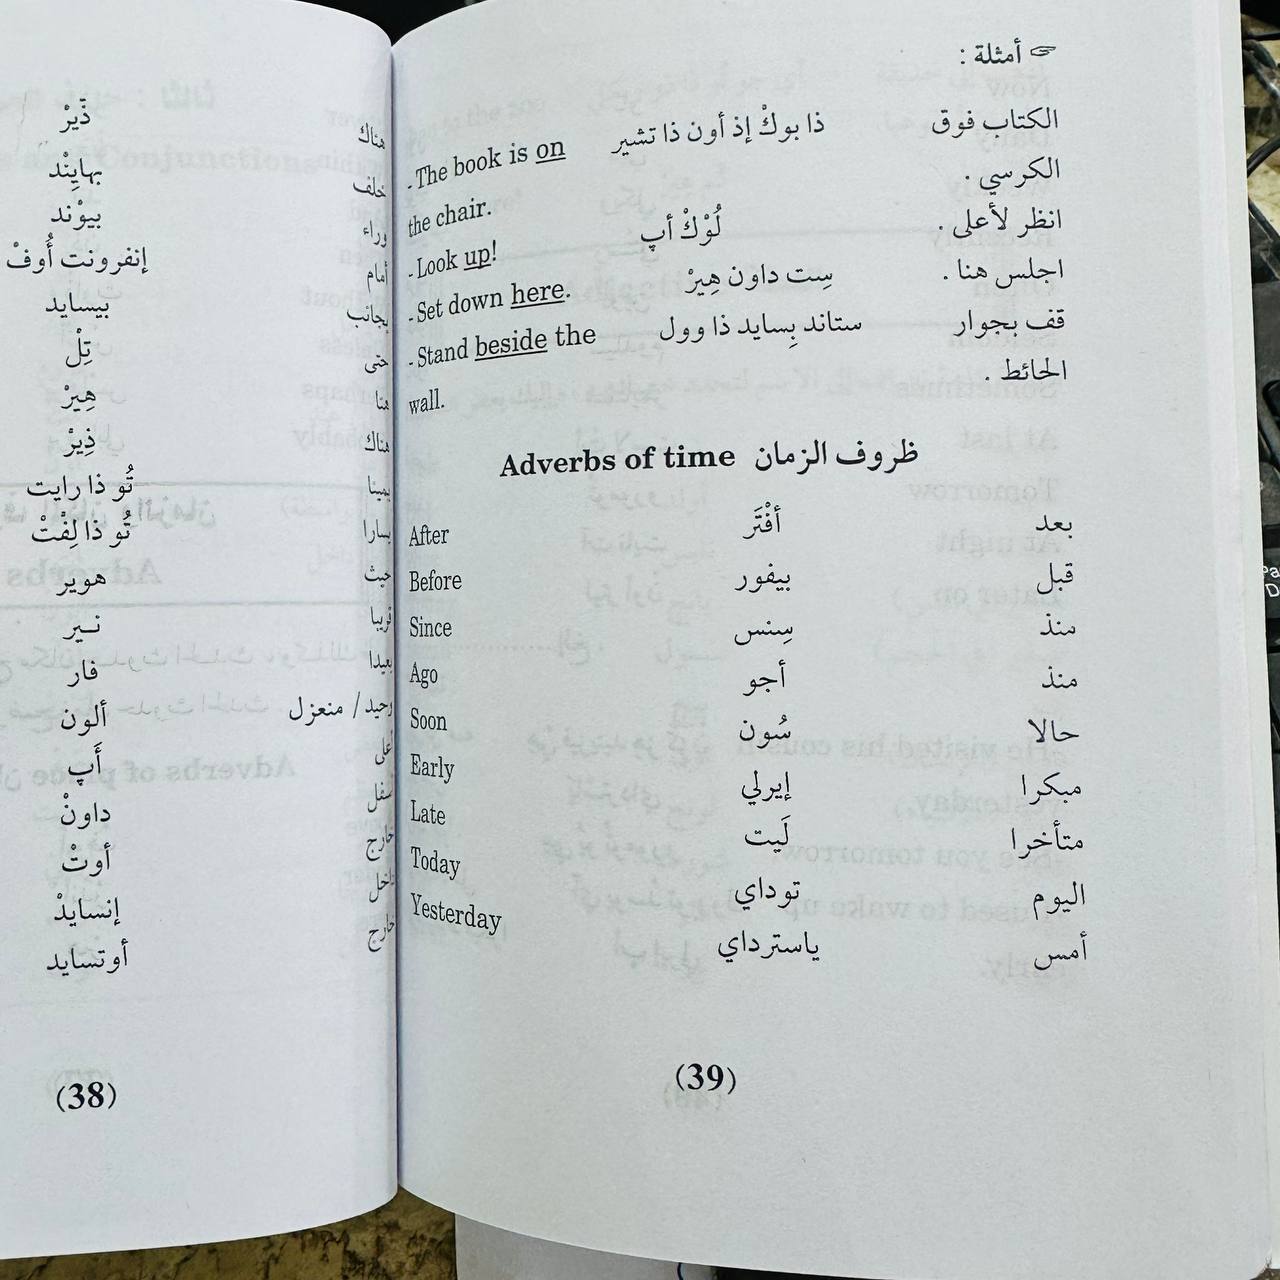 ذَيرْ هناك
بهايِنْد خلف
بيوْند وراء
إنفرونت أُوفْ أمام
بيسايد بجانب
تِلْ حتى
هِيرْ هنا
ذِيرْ هناك
تُو ذا رايت يمينا
تُو ذا لِفْتْ يسارا
هوير حيث
نير قريبا
فار بعيدا
ألون وحيد / منعزل
أَپ أعلى
داونْ أسفل
أوتْ خارج
إنسايدْ داخل
أوتسايد خارج
(38)
☞ أمثلة :
- The book is on ذا بوكْ إذ أون ذا تشير الكتاب فوق
the chair. الكرسي .
- Look up! لُوْكْ أپ انظر لأعلى .
- Set down here. سِت داون هِيرْ اجلس هنا .
- Stand beside the ستاند بِسايد ذا وول قف بجوار
wall. الحائط .
Adverbs of time ظروف الزمان
After أفْتَر بعد
Before بيفور قبل
Since سِنس منذ
Ago أجو منذ
Soon سُون حالا
Early إيرلي مبكرا
Late لَيت متأخرا
Today توداي اليوم
Yesterday ياسترداي أمس
(39)